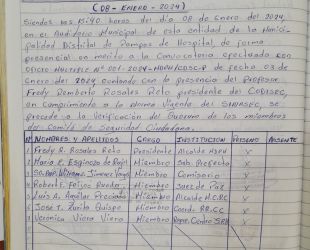 (08 - ENERO - 2024)
Siendo las horas del día 08 de Enero del 2024,
en el Auditorio Municipal de esta entidad de la Munici-
palidad Distrital de Pampas de Hospital, de forma
presencial en merito a la Convocatoria efectuada con
de fecha 03 de
Enero del 2024, Contando con la presencia del Profesor
Fredy Remberto Rosales Reto presidente del CODISEC,
en Cumplimiento a la Norma Vigente del SINASEC, se
procede a la Verificación del Quorum de los miembros
del Comité de Seguridad Ciudadana.
NOMBRES Y APELLIDOS CARGO INSTITUCIÓN PRESENTE AUSENTE
1 Fredy R. Rosales Reto Presidente Alcalde MDPH X
2 María E. Espinoza de Miembro Sub. Prefecta X
3 William Jimenez Miembro Comisario X
4 Robert F. Feijoo Miembro Juez de Paz X
5 Luis A. Aguilar Miembro Alcalde X
6 José T. Zurita Quispe Miembro Coord. X
7 Veronica Viera Viera Miembro X